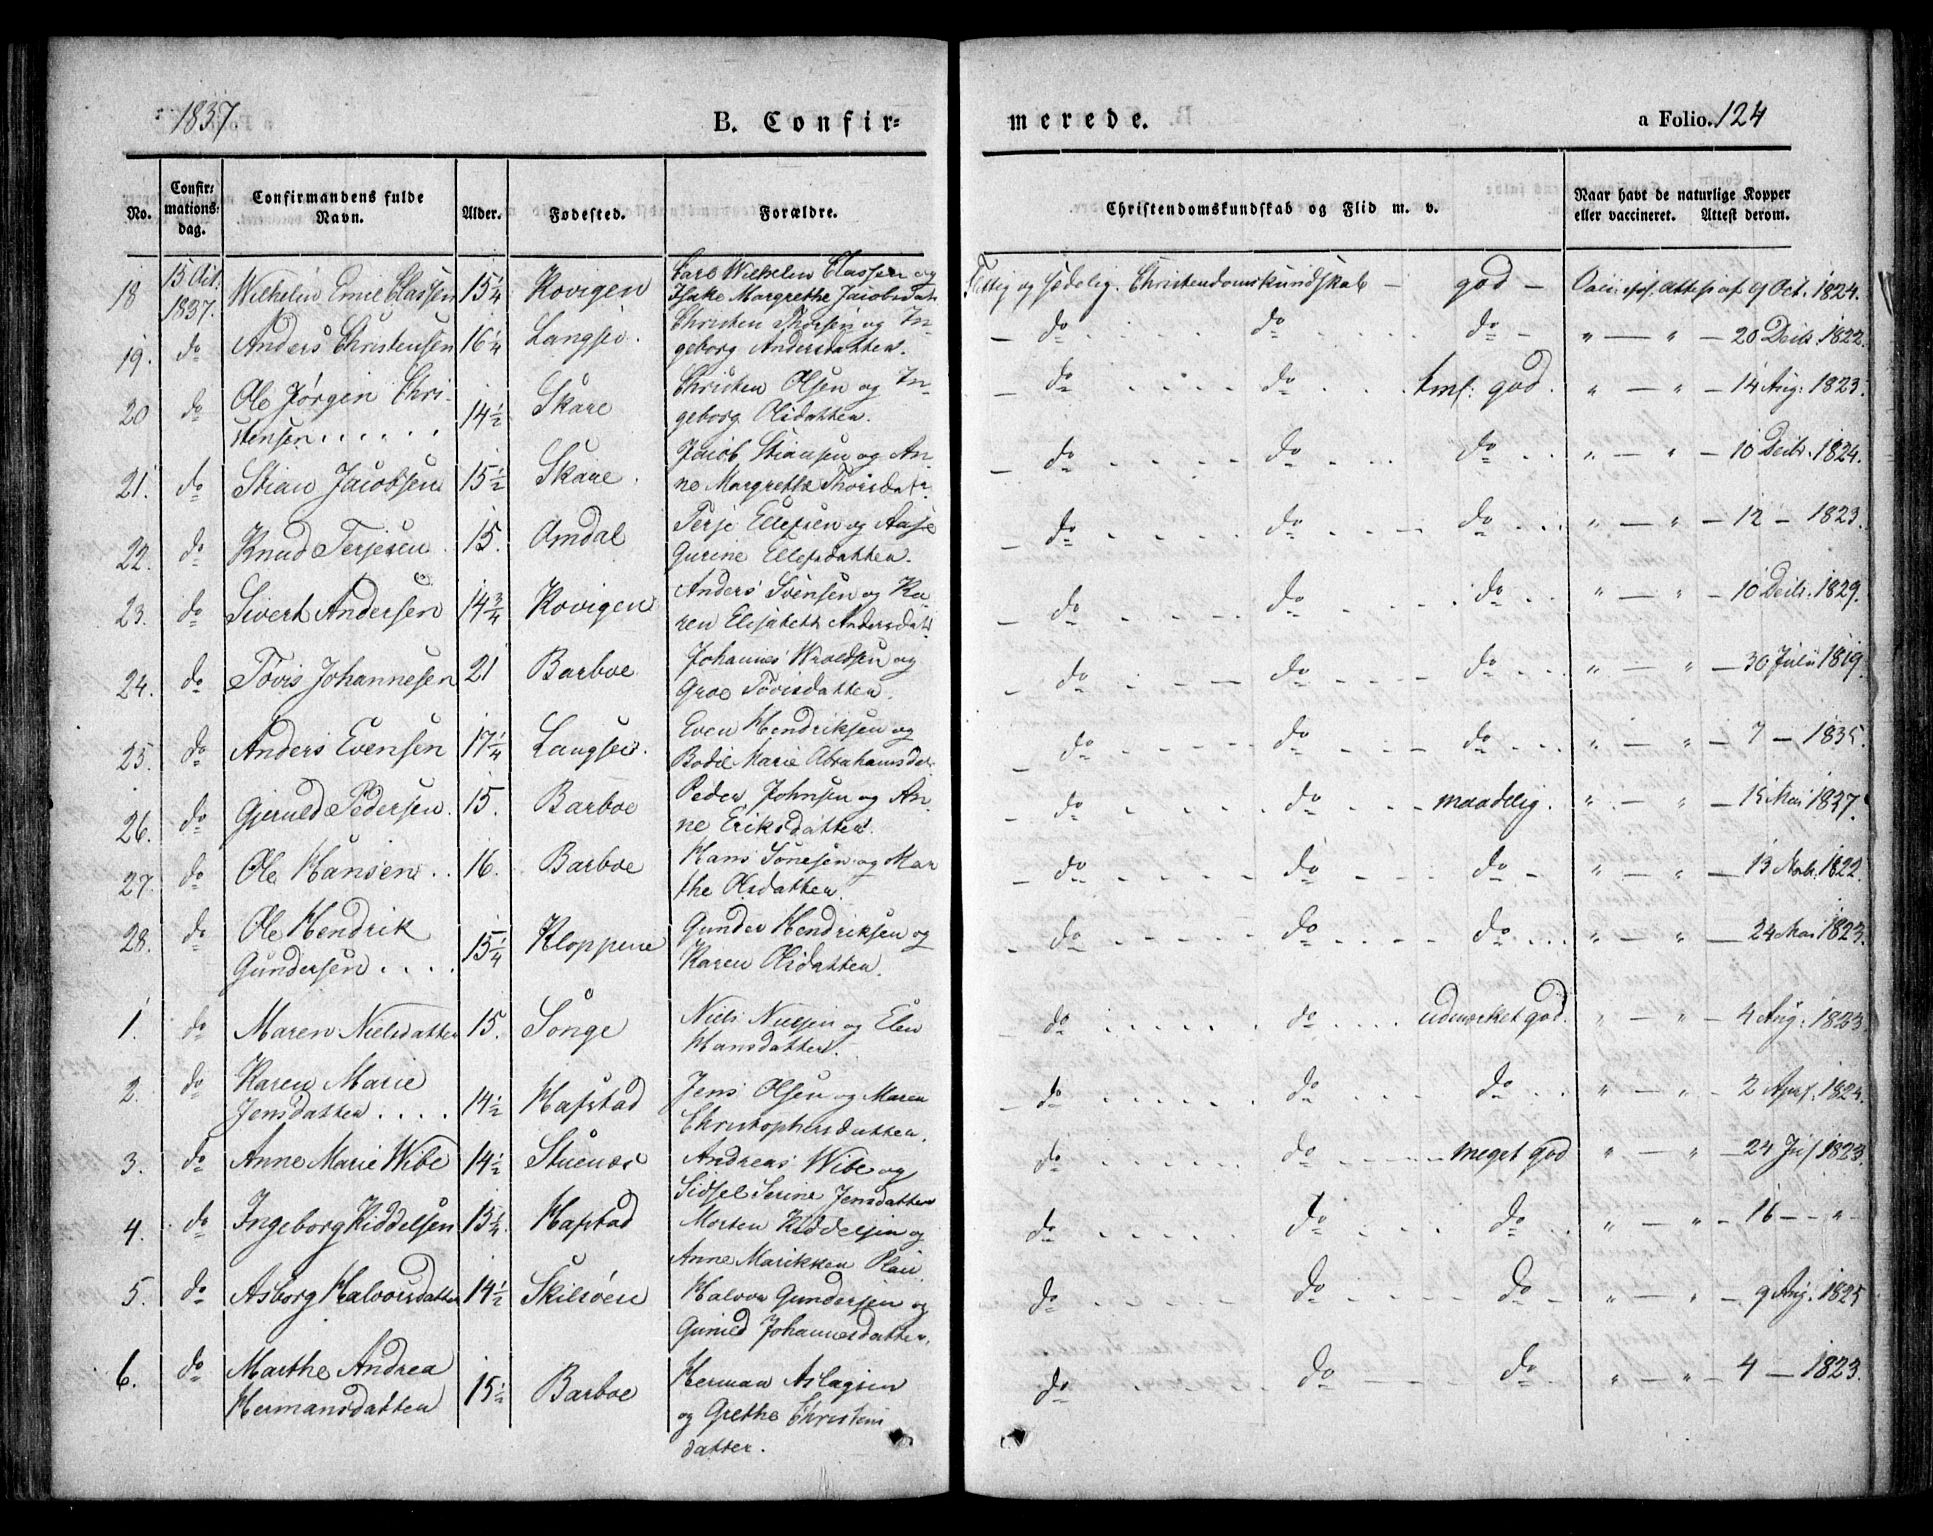 1837
B. Confir=
merede.
a Folio. 124
No.
Confir=
mations=
dag.
Confirmandens fulde
Navn.
Alder.
Fødested.
Forældre.
Christendomskundskab og Flid m. v.
Naar havt de naturlige Kopper
eller vaccineret. Attest derom.
18 15 Oct. 1837. Wilhelm Emil Classen 15 1/4 Kovigen Carl Wilhelm Classen og
Margrethe Jacobsdat Flittig og sædelig. Christendomskundskab — god — attest af 9 Oct. 1824.
19. do Anders Christensen 16 1/4 Langsev. Christen Thorsen og In-
geborg Andersdatter. — do do do — " — " — 20 Decbr. 1822.
20 do Ole Jørgen Chri-
stensen 14 1/2 Skare Christen Olsen og In-
geborg Olsdatter. — do do tml: god. " — " — 14 Aug: 1823.
21. do Stian Jacobsen 15 1/2 Skare. Jacob Stiansen og An-
ne Margrethe Thorsdatr. — do do do " — " — 10 Decbr. 1824.
22. do Knud Terjesen 15. Amdal Terje Ellefsen og Aase
Gurine Ellefsdatter. — do do do " — " — 12 — 1823.
23. do Sivert Andersen 14 3/4 Kovigen Anders Svensen og Ka-
ren Elisabeth Andersdat. — do do do " — " — 10 Decbr. 1829.
24. do Tovis Johannesen 21 Barboe Johannes Wroldsen og
Groe Tovisdatter. — do do do " — " — 30 Julii 1819.
25. do Anders Evensen 17 1/4 Langsev. Even Hendriksen og
Bodil Marie Abrahamsdat. — do do do " — " — 7 — 1835.
26. do Gjeruld Pedersen. 15. Barboe Peder Johnsen og An-
ne Eriksdatter. — do do maadelig. " — " — 15 Mai 1827.
27. do Ole Hansen 16. Barboe Hans Tønesen og Mar
the Olsdatter. — do do do — " — " — 13 Novbr. 1822.
28. do Ole Hendrik
Gundersen 15 1/4 Kloppene Gunder Hendriksen og
Karen Olsdatter. — do do do " — " — 24 Mai 1823.
1. do Maren Nielsdatter 15. Songe Niels Nielsen og Elen
Hansdatter. — do do udmærket god. " — " — 4 Aug: 1823.
2. do Karen Marie
Jensdatter 14 1/2 Hafstad Jens Olsen og Maren
Christophersdatter. — do do do " — " — 2 Apr. 1824.
3. do Anne Marie Wibe 14 1/2 Stuenæs Andreas Wibe og
Sidsel Serine Jensdatter do do meget god " — " — 24 Jul 1823.
4. do Ingeborg Kiddelsen 15 1/4. Hafstad Morten Kiddelsen og
Anne Marikken do do do " — " — 16 — " —
5. do Asborg Halvorsdatter 14 1/2 Skilsøen Halvor Gundersen og
Gunild Johannesdatter. do do do — " — " — 9 Aug. 1825
6. do Marthe Andrea
Hermansdatter 15 1/2 Barboe Herman Aslagsen
og Grethe Christens
datter. do do do " — " — 4 — 1823.